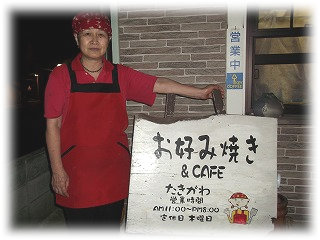 営業中
お好み焼き
& CAFE
たきがわ
営業時間
AM11:00~PM8:00
定休日 木曜日